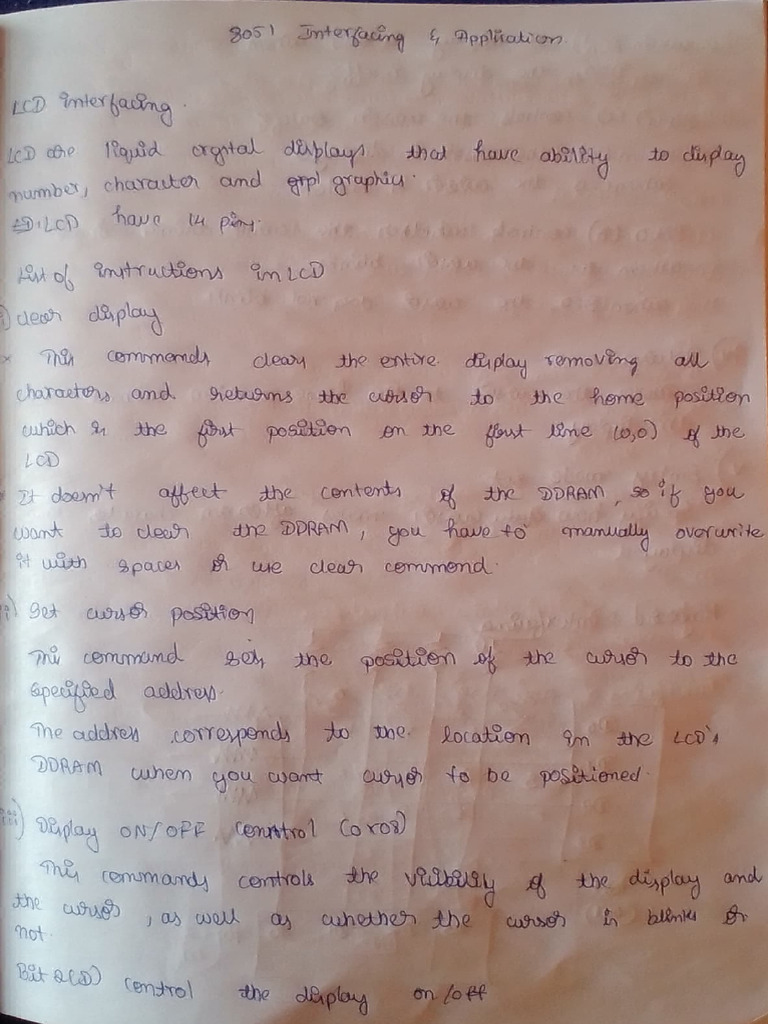 8051 Interfacing & Application.
LCD interfacing.
LCD are liquid crystal displays that have ability to display
number, character and grpl graphics.
LCD have 14 pins.
List of instructions in LCD
i) clear display
This commends clears the entire display removing all
charaetors and returns the cursor to the home position
which is the first position on the first line (0,0) of the
LCD
It doesn't affect the contents of the DDRAM, so if you
want to clear the DDRAM, you have to manually overwrite
it with spaces or use clear commend.
ii) Set cursor position
This command sets the position of the cursor to the
specified address.
The address corresponds to the location in the LCD's
DDRAM when you want cursor to be positioned.
iii) Display ON/OFF control (0x08)
This commands controls the visibility of the display and
the cursor, as well as whether the cursor is blinks or
not.
Bit 2(D) control the display on/off